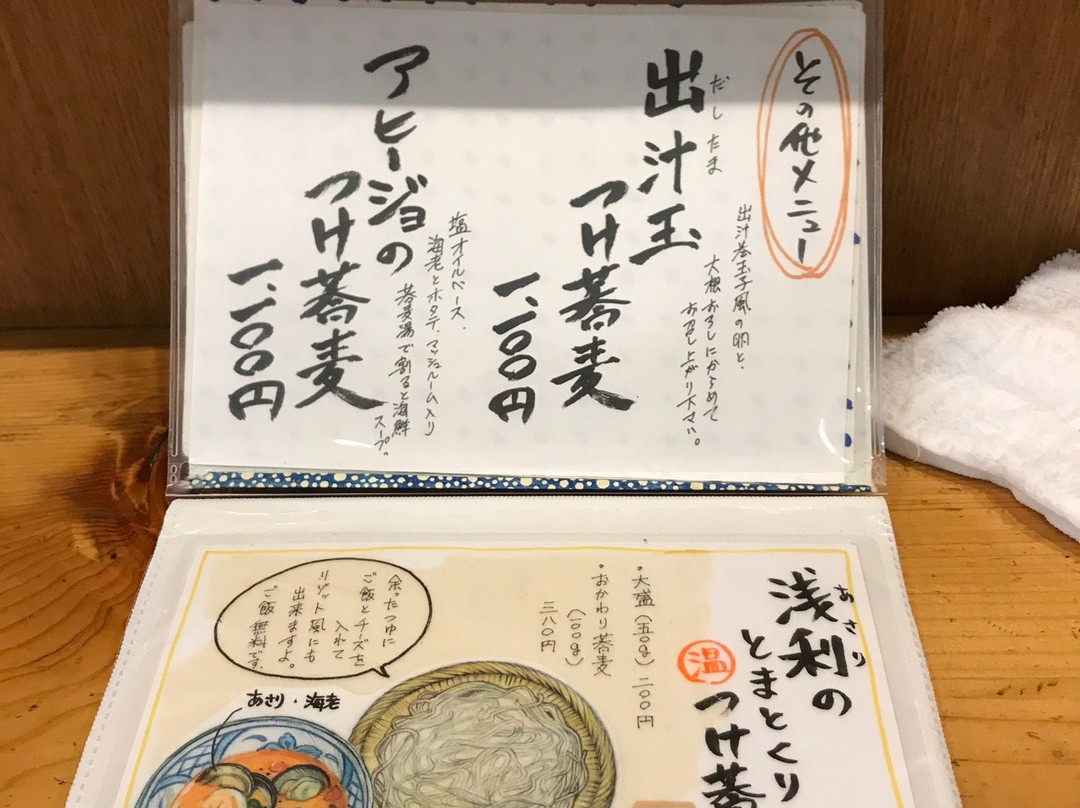 その他メニュー
だしたま
出汁玉
つけ蕎麦
一、一〇〇円
出汁巻玉子風の卵と、
大根おろしにからめて
お召し上がり下さい。
アヒージョの
つけ蕎麦
一、一〇〇円
塩オイルベース、
海老とホタテ、マッシュルーム入り
蕎麦湯で割ると海鮮
スープ。
あさり
浅利の
とまとくり
つけ蕎
温
・大盛(五〇g)二〇〇円
・おかわり蕎麦
(一〇〇g)
三八〇円
余ったつゆに
ご飯とチーズを
入れて
リゾット風にも
出来ますよ。
ご飯無料です
あさり・海老